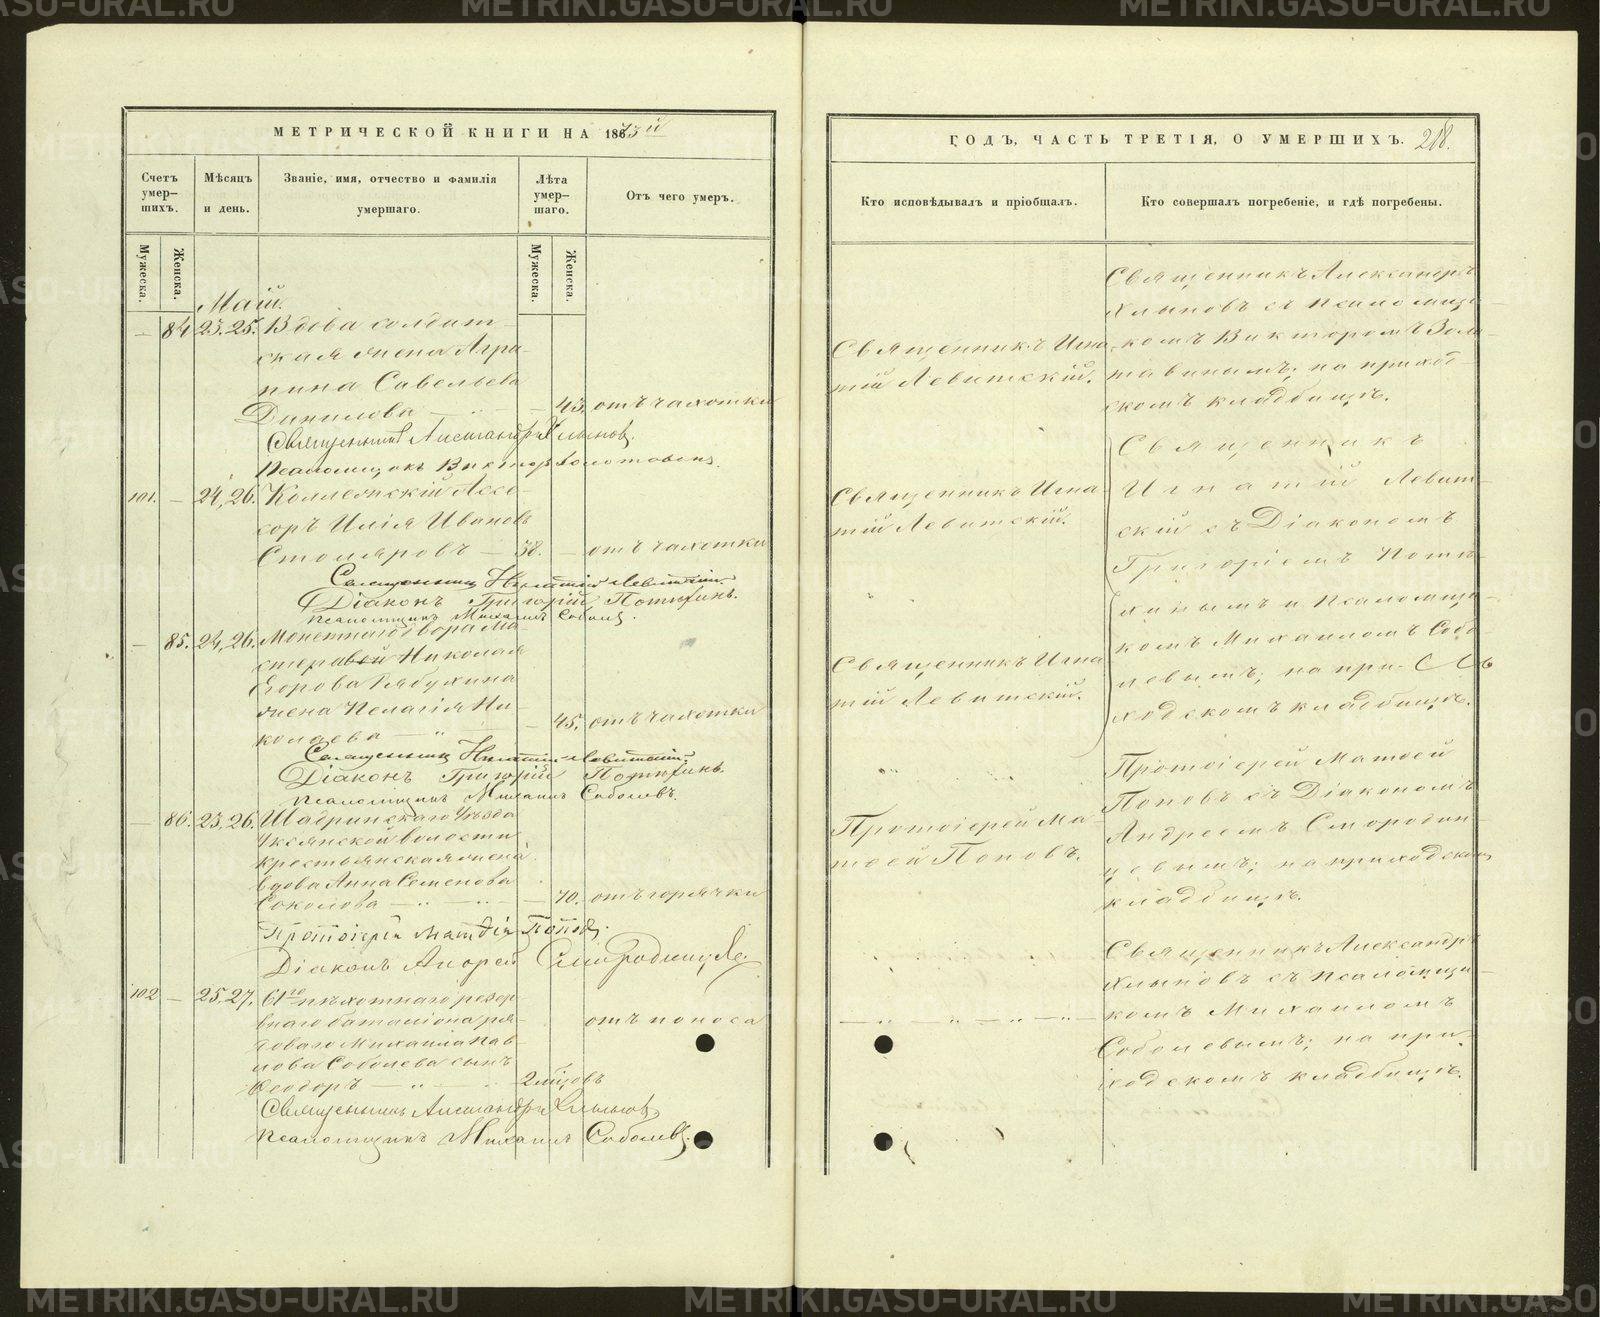 МЕТРИЧЕСКОЙ КНИГИ НА 1873й
Счетъ умер-
шихъ.
Мѣсяцъ
и день.
Званіе, имя, отчество и фамилія
умершаго.
Лѣта
умер-
шаго.
Отъ чего умеръ.
Мужеска.
Женска.
Мужеска.
Женска.
Май.
— 84 23. 25. Вдова солдат-
ская жена Агри-
пина Савельева
Данилова — 43. отъ чахотки
Священникъ Александръ Хлыновъ.
Псаломщикъ Викторъ Золотавинъ.
101. — 24, 26. Коллежскій Ассе-
соръ Илія Ивановъ
Столяровъ — 38. — отъ чахотки
Священникъ Игнатій Левитскій.
Діаконъ Григорій Потѣхинъ.
Псаломщикъ Михаилъ Соболевъ.
— 85. 24, 26. Монетнаго двора Ма-
стера Николая
Егорова Рябухина
жена Пелагія Ни-
колаева — 45. отъ чахотки
Священникъ Игнатій Левитскій.
Діаконъ Григорій Потѣхинъ.
Псаломщикъ Михаилъ Соболевъ.
— 86. 23, 26. Шадринскаго Уѣзда
Уксянской волости
крестьянская жена
вдова Анна Семенова
Соколова — 70. отъ горячки
Протоіерей Матѳій Поповъ.
Діаконъ Андрей Смородинцевъ.
102 — 25. 27. 61го пѣхотнаго резер-
внаго баталіона ря-
доваго Михаила Пав-
лова Соболева сынъ
Ѳеодоръ — 2 мѣсяцовъ
отъ поноса
Священникъ Александръ Хлыновъ
Псаломщикъ Михаилъ Соболевъ.
ГОДЪ, ЧАСТЬ ТРЕТІЯ, О УМЕРШИХЪ. 218.
Кто исповѣдывалъ и пріобщалъ.
Кто совершалъ погребеніе, и гдѣ погребены.
Священникъ Игна-
тій Левитскій.
Священникъ Александръ
Хлыновъ съ Псаломщи-
комъ Викторомъ Золо-
тавинымъ; на приход-
скомъ кладбищѣ.
Священникъ Игна-
тій Левитскій.
Священникъ
Игнатій Левит-
скій съ Діакономъ
Григоріемъ Потѣ-
хинымъ и Псаломщи-
комъ Михаиломъ Собо-
левымъ; на при-
ходскомъ кладбищѣ.
Священникъ Игна
тій Левитскій.
Протоіерей Ма-
тѳей Поповъ.
Протоіерей Матѳей
Поповъ съ Діакономъ
Андреемъ Смородин-
цевымъ; на приходскомъ
кладбищѣ.
Священникъ Александръ
Хлыновъ съ Псаломщи-
комъ Михаиломъ
Соболевымъ; на при-
ходскомъ кладбищѣ.
METRIKI.GASO-URAL.RU